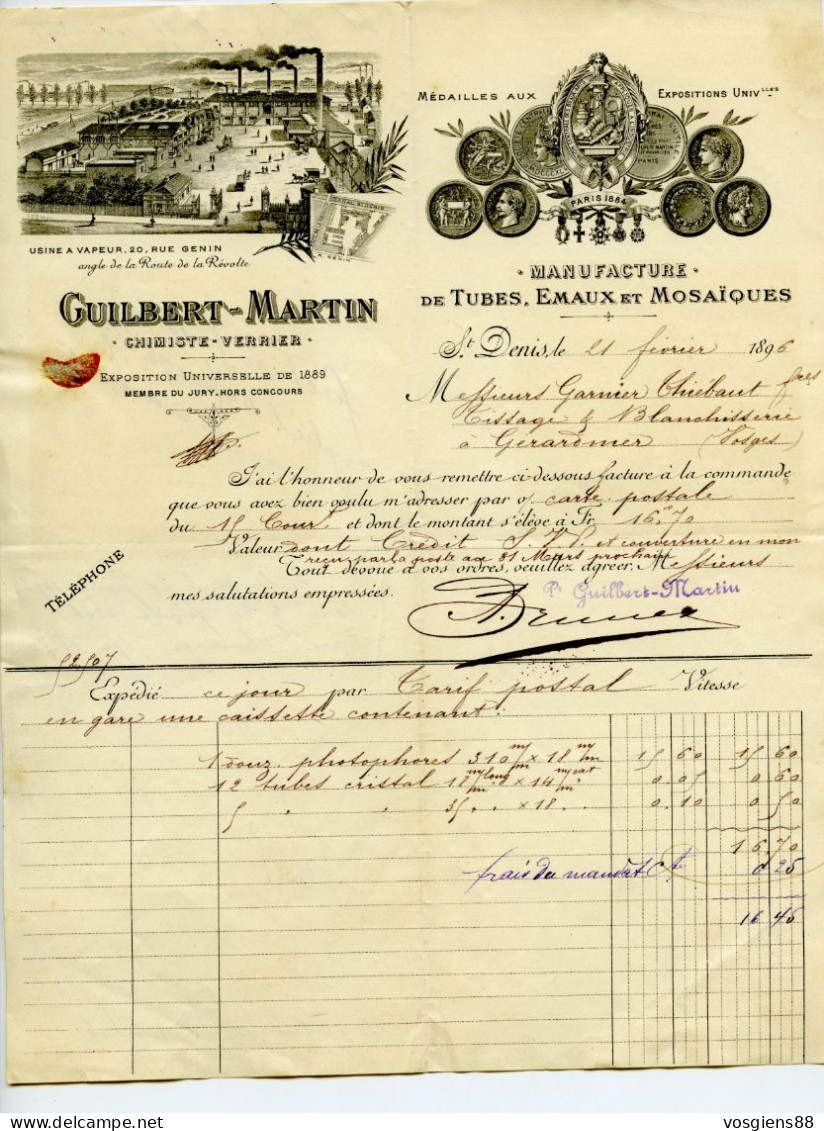 MÉDAILLES AUX EXPOSITIONS UNIVLLES
PARIS 1884
USINE A VAPEUR, 20, RUE GENIN
angle de la Route de la Révolte
GUILBERT-MARTIN
· CHIMISTE-VERRIER ·
EXPOSITION UNIVERSELLE DE 1889
MEMBRE DU JURY. HORS CONCOURS
· MANUFACTURE ·
DE TUBES, EMAUX ET MOSAÏQUES
St Denis, le 21 février 1896
Messieurs Garnier Thiebaut fres
Tissage & Blanchisserie
à Gerardmer (Vosges)
J'ai l'honneur de vous remettre ci-dessous facture à la commande
que vous avez bien voulu m'adresser par v/ carte postale
du 15 Court et dont le montant s'élève à Fr. 16.70
Valeur dont Crédit S.V.P. et couverture en mon
reçu par la poste au 31 Mars prochain
Tout dévoué à vos ordres, veuillez agréer, Messieurs
mes salutations empressées.
TÉLÉPHONE
Pr Guilbert-Martin
52507
Expédié ce jour par Tarif postal Vitesse
en gare une caissette contenant:
1 douz. photophores 310 m/m × 18 m/m 15 60 15 60
12 tubes cristal 18 m/m long × 14 m/m 0.05 0.60
5 " " 35 " × 18 " " 0.10 0.50
16.70
frais du mandat Cte 0 25
16 45
vosgiens88